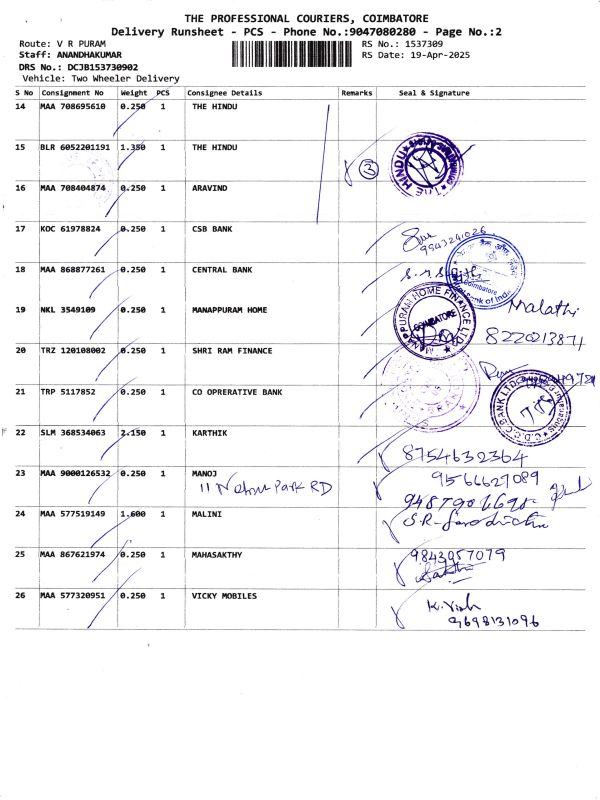 THE PROFESSIONAL COURIERS, COIMBATORE
Delivery Runsheet - PCS - Phone No.:9047080280 - Page No.:2
Route: V R PURAM RS No.: 1537309
Staff: ANANDHAKUMAR RS Date: 19-Apr-2025
DRS No.: DCJB153730902
Vehicle: Two Wheeler Delivery
S No Consignment No Weight PCS Consignee Details Remarks Seal & Signature
14 MAA 708695610 0.250 1 THE HINDU
15 BLR 6052201191 1.350 1 THE HINDU
3
THE HINDU
16 MAA 708404874 0.250 1 ARAVIND
17 KOC 61978824 0.250 1 CSB BANK
9943241026
18 MAA 868877261 0.250 1 CENTRAL BANK
Coimbatore
19 NKL 3549109 0.250 1 MANAPPURAM HOME
MANAPPURAM HOME FINANCE LTD
COIMBATORE
Malathi
8220213871
20 TRZ 120108002 0.250 1 SHRI RAM FINANCE
21 TRP 5117852 0.250 1 CO OPRERATIVE BANK
C.D.C.C.BANK LTD
22 SLM 368534063 2.150 1 KARTHIK
8754632364
23 MAA 9000126532 0.250 1 MANOJ
9566627089
11 Nehru Park RD
24 MAA 577519149 1.600 1 MALINI
25 MAA 867621974 0.250 1 MAHASAKTHY
9843057079
26 MAA 577320951 0.250 1 VICKY MOBILES
9698131096